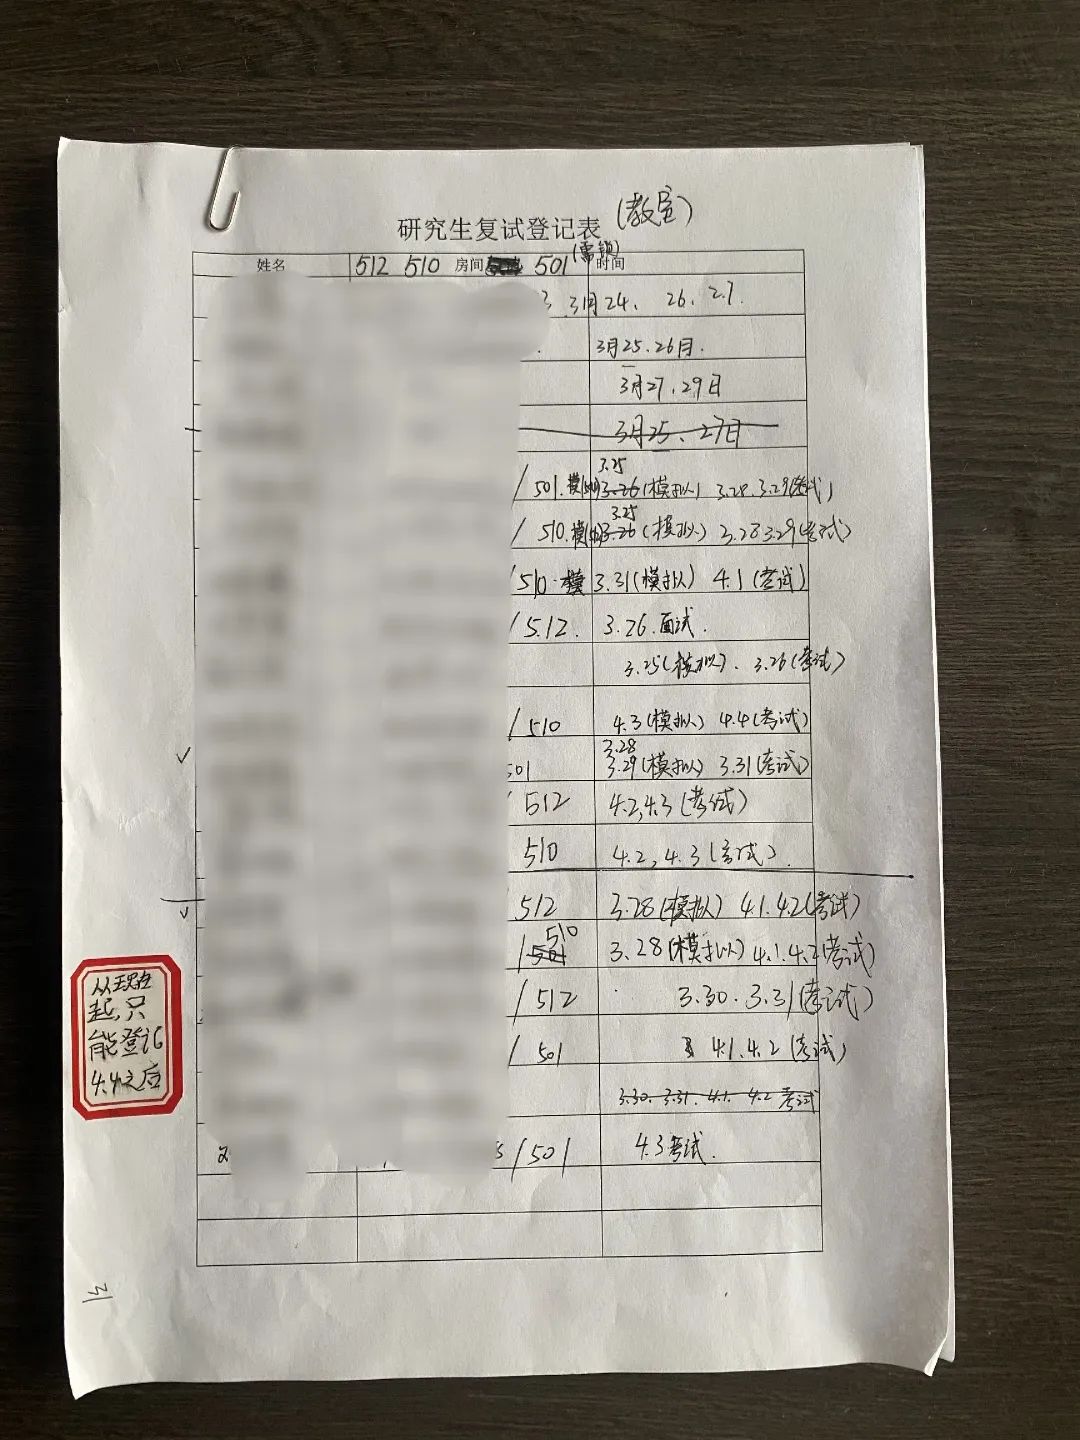 研究生复试登记表（教室）
姓名 512 510 房间 501（需锁） 时间
3月24、26、27.
3月25.26日.
3月27、29日
3月25、27日
3.25
/ 501. 3.26（模拟） 3.28.3.29（考试）
3.25
/ 510. 3.26（模拟） 3.28 3.29（考试）
/ 510. 3.31（模拟） 4.1（考试）
/ 512. 3.26.面试.
3.25（模拟）. 3.26（考试）
/ 510 4.3（模拟） 4.4（考试）
3.28
501 3.29（模拟） 3.31（考试）
/ 512 4.2,4.3（考试）
510 4.2,4.3（考试）.
512 3.28（模拟） 4.1.4.2（考试）
510
/ 501 3.28（模拟）4.1.4.2（考试）
/ 512 3.30.3.31（考试）
/ 501 4.1.4.2（考试）
3.30.3.31.4.1.4.2考试
/ 501 4.3考试.
从现在
起,只
能登记
4.4之后